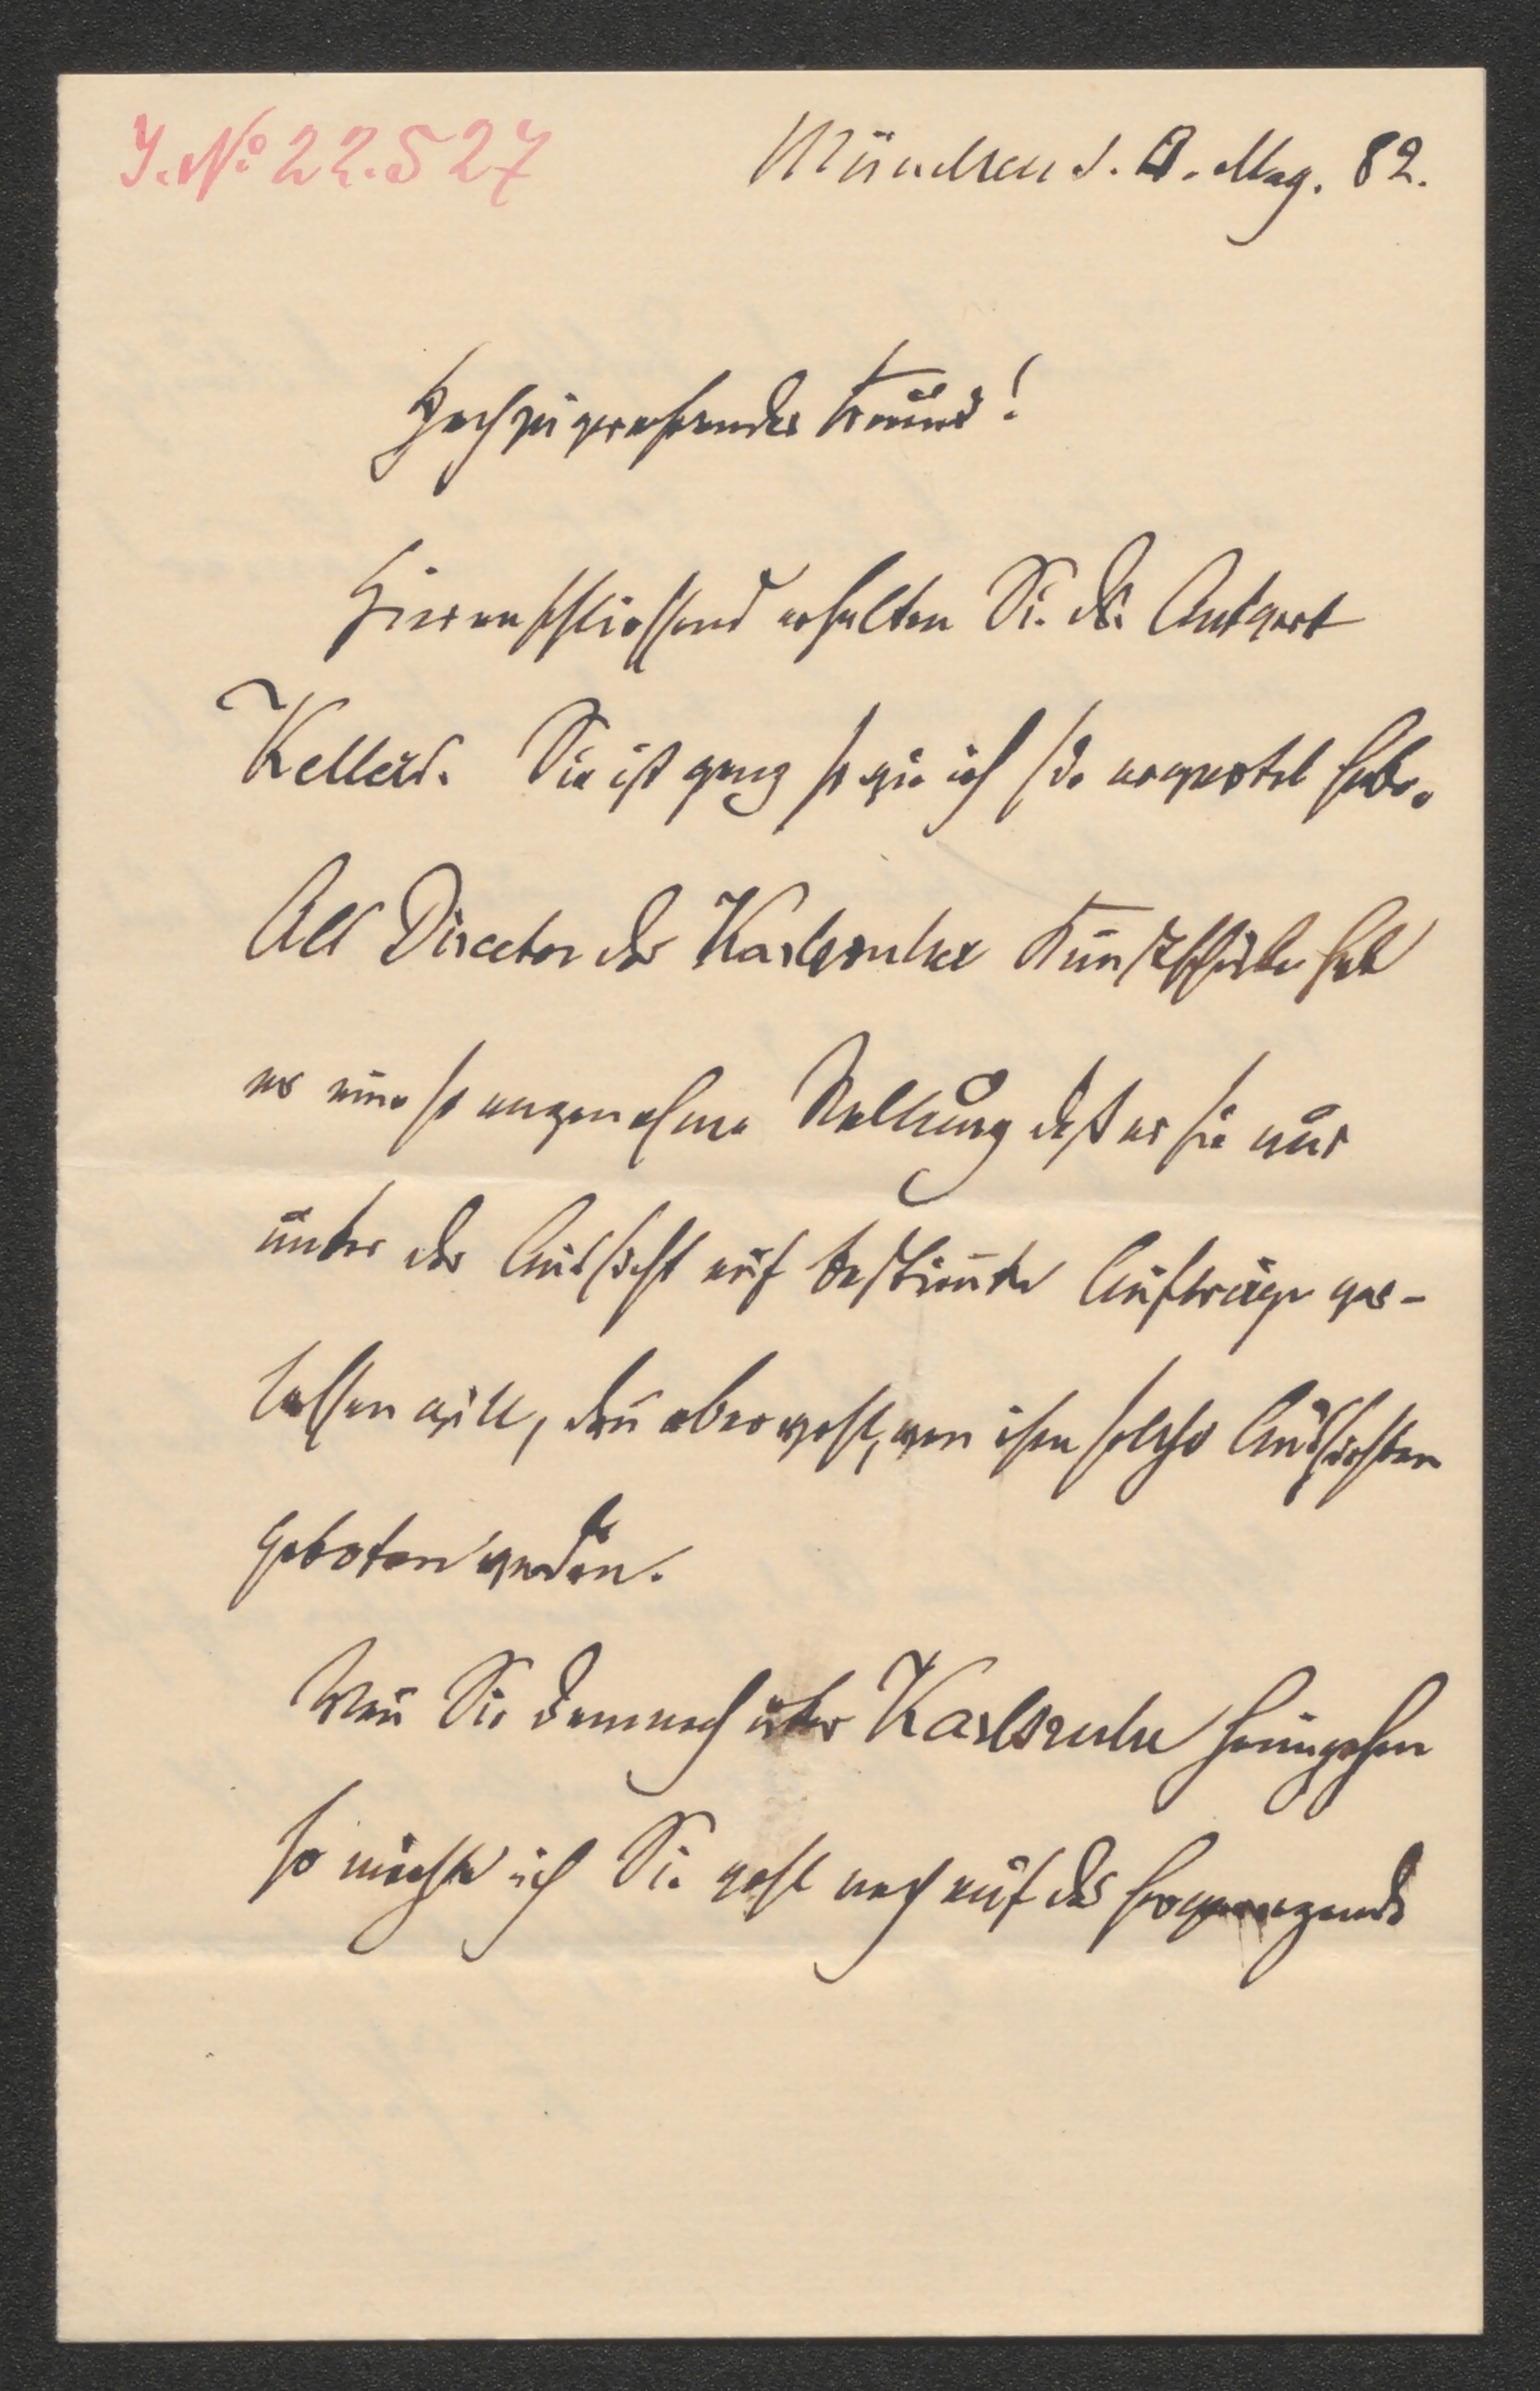 J. No 22.527
München d. 9. May. 82.
Hochzuverehrender Freund!
Hieranschließend erhalten Sie die Antwort
Kellers. Sie ist ganz so wie ich sie erwartet habe.
Als Director der Karlsruher Kunstschule hat
er eine so angenehme Stellung daß er sie nur
unter der Aussicht auf bestim̄te Aufträge ver-
lassen will, dan̄ aber wohl, wen ihm solche Aussichten
geboten werden.
Wen̄ Sie demnach über Karlsruhe heimgehen
so möchte ich Sie wohl noch auf das hervorragende